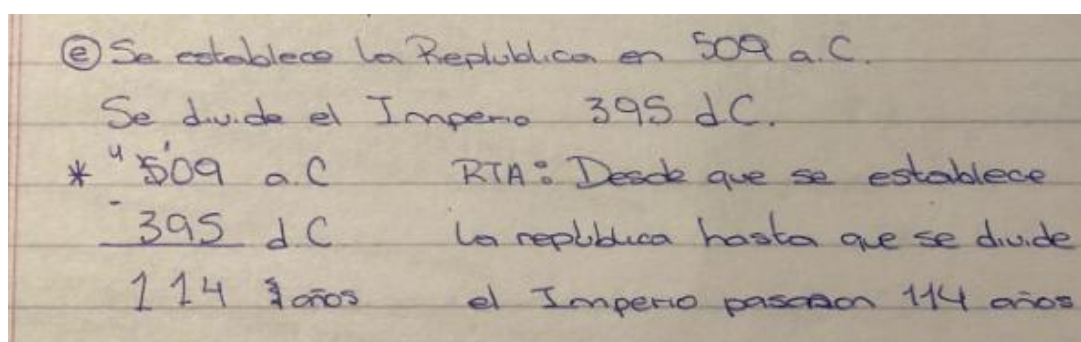 ⓔ Se establece la Replublica en 509 a.C.
Se divide el Imperio 395 d.C.
* 4 1 509 a.C RTA: Desde que se establece
- 395 d.C la replública hasta que se divide
114 años el Imperio pasaron 114 años